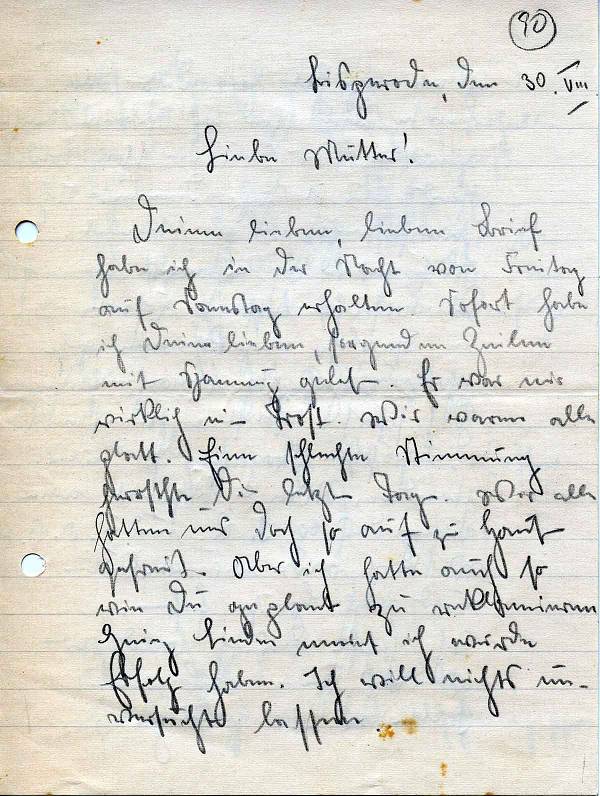 90
Bisperode, den 30. VIII
Liebe Mutter!
Deinen lieben, lieben Brief
habe ich in der Nacht von Freitag
auf Samstag erhalten. Sofort habe
ich Deine lieben, sorgenden Zeilen
mit Spannung gelest. Er war mir
wirklich ein Trost. Wir waren alle
platt. Eine schlechte Stimmung
herrschte die letzten Tage. Wir alle
hatten uns doch so auf zu Haus
gefreut. Aber ich hatte auch so
wie Du geplant zu reklamieren
meint ich würde
Erfolg haben. Ich will nichts un-
versucht lassen